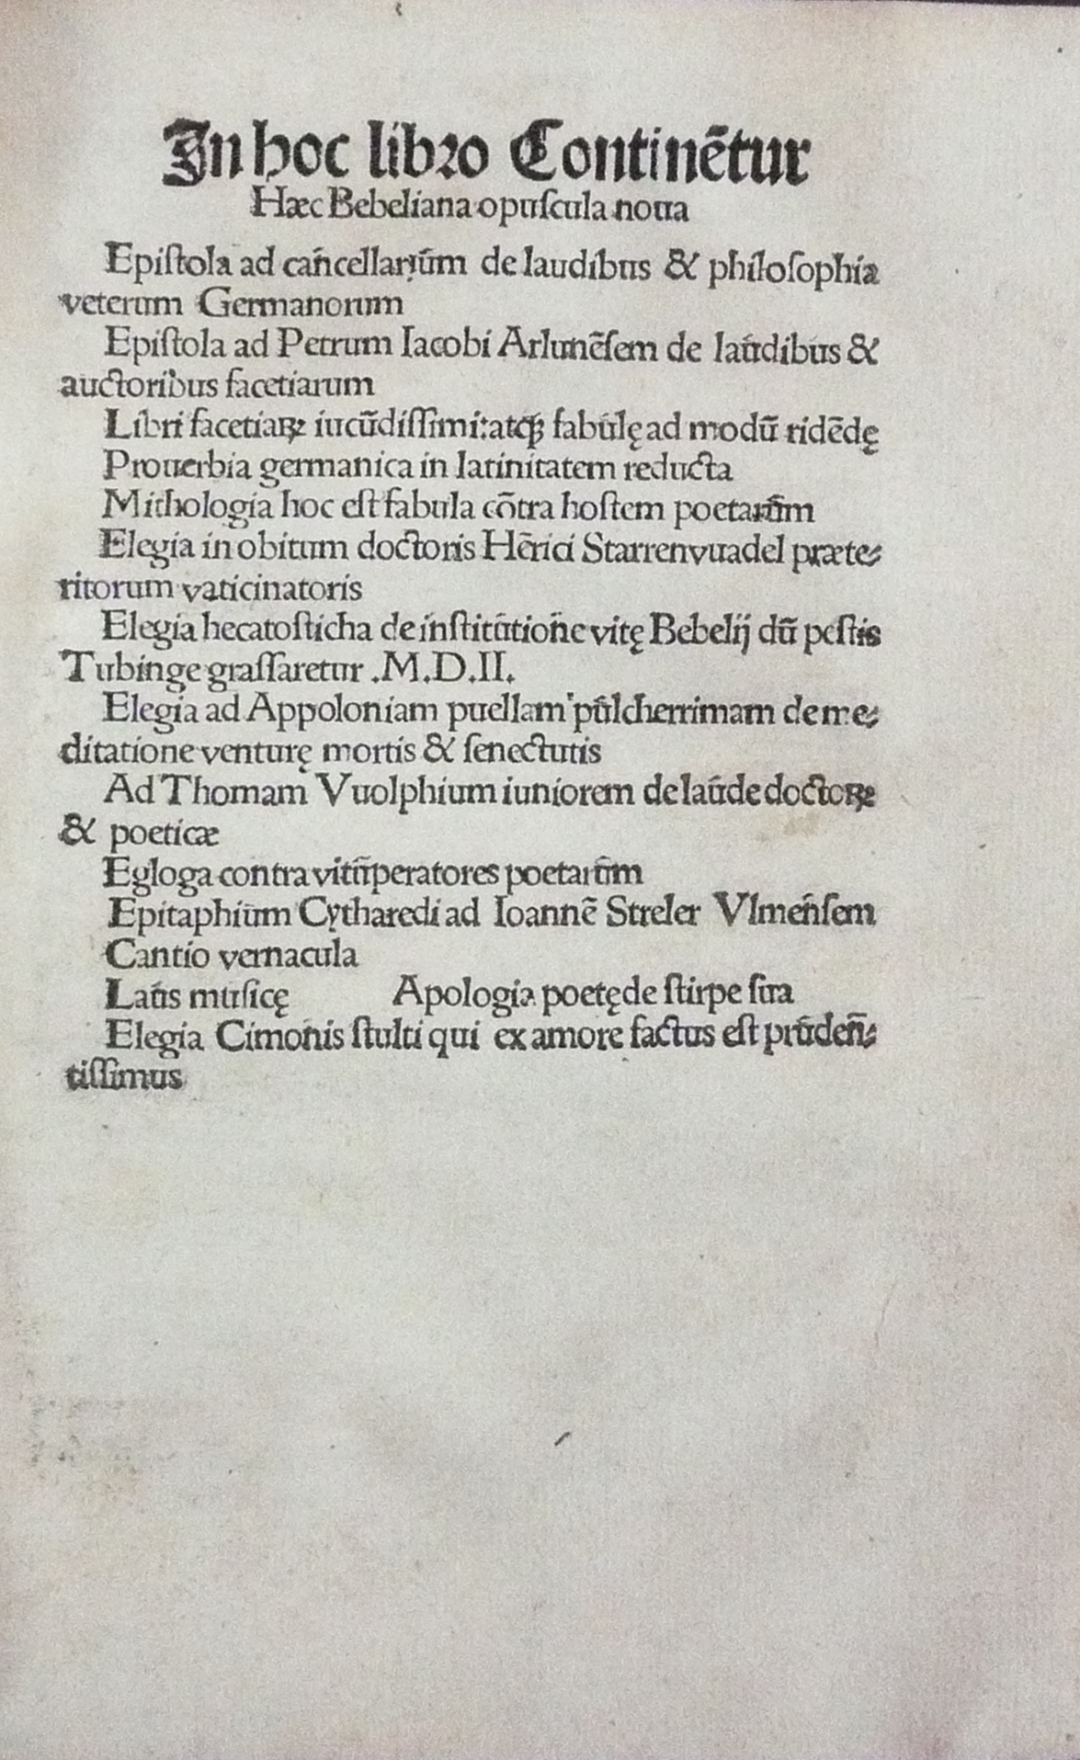 In hoc libro Continẽtur
Hæc Bebeliana opuſcula noua
Epiſtola ad cancellarium de laudibus & philoſophia
veterum Germanorum
Epiſtola ad Petrum Iacobi Arlunẽſem de laudibus &
auctoribus facetiarum
Libri facetiaꝝ iucũdiſſimi: atqꝫ fabulę ad modũ ridẽdę
Prouerbia germanica in latinitatem reducta
Mithologia hoc eſt fabula cõtra hoſtem poetarum
Elegia in obitum doctoris Hẽrici Starrenvuadel præte⸗
ritorum vaticinatoris
Elegia hecatoſticha de inſtitutione vitę Bebelij dũ peſtis
Tubinge graſſaretur .M.D.II.
Elegia ad Appoloniam puellam pulcherrimam de me⸗
ditatione venturę mortis & ſenectutis
Ad Thomam Vuolphium iuniorem de laude doctoꝝ
& poeticæ
Egloga contra vituperatores poetarum
Epitaphium Cytharedi ad Ioannẽ Streler Vlmenſem
Cantio vernacula
Laus muſicę Apologia poetę de ſtirpe ſua
Elegia Cimonis ſtulti qui ex amore factus eſt pruden⸗
tiſſimus